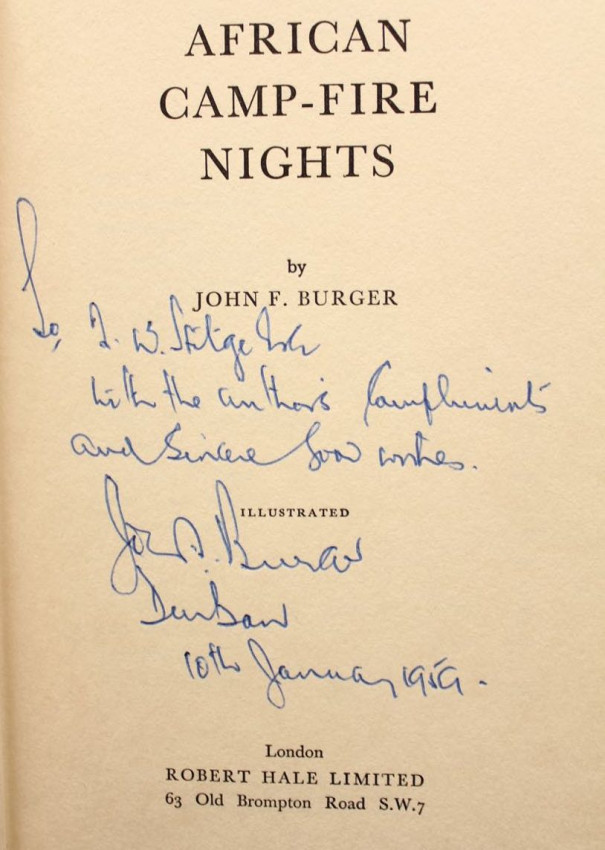 AFRICAN
CAMP-FIRE
NIGHTS
by
JOHN F. BURGER
To, W.
with the author's Compliments
and Sincere Good wishes.
ILLUSTRATED
Burger
Durban
10th January 1959.
London
ROBERT HALE LIMITED
63 Old Brompton Road S.W.7